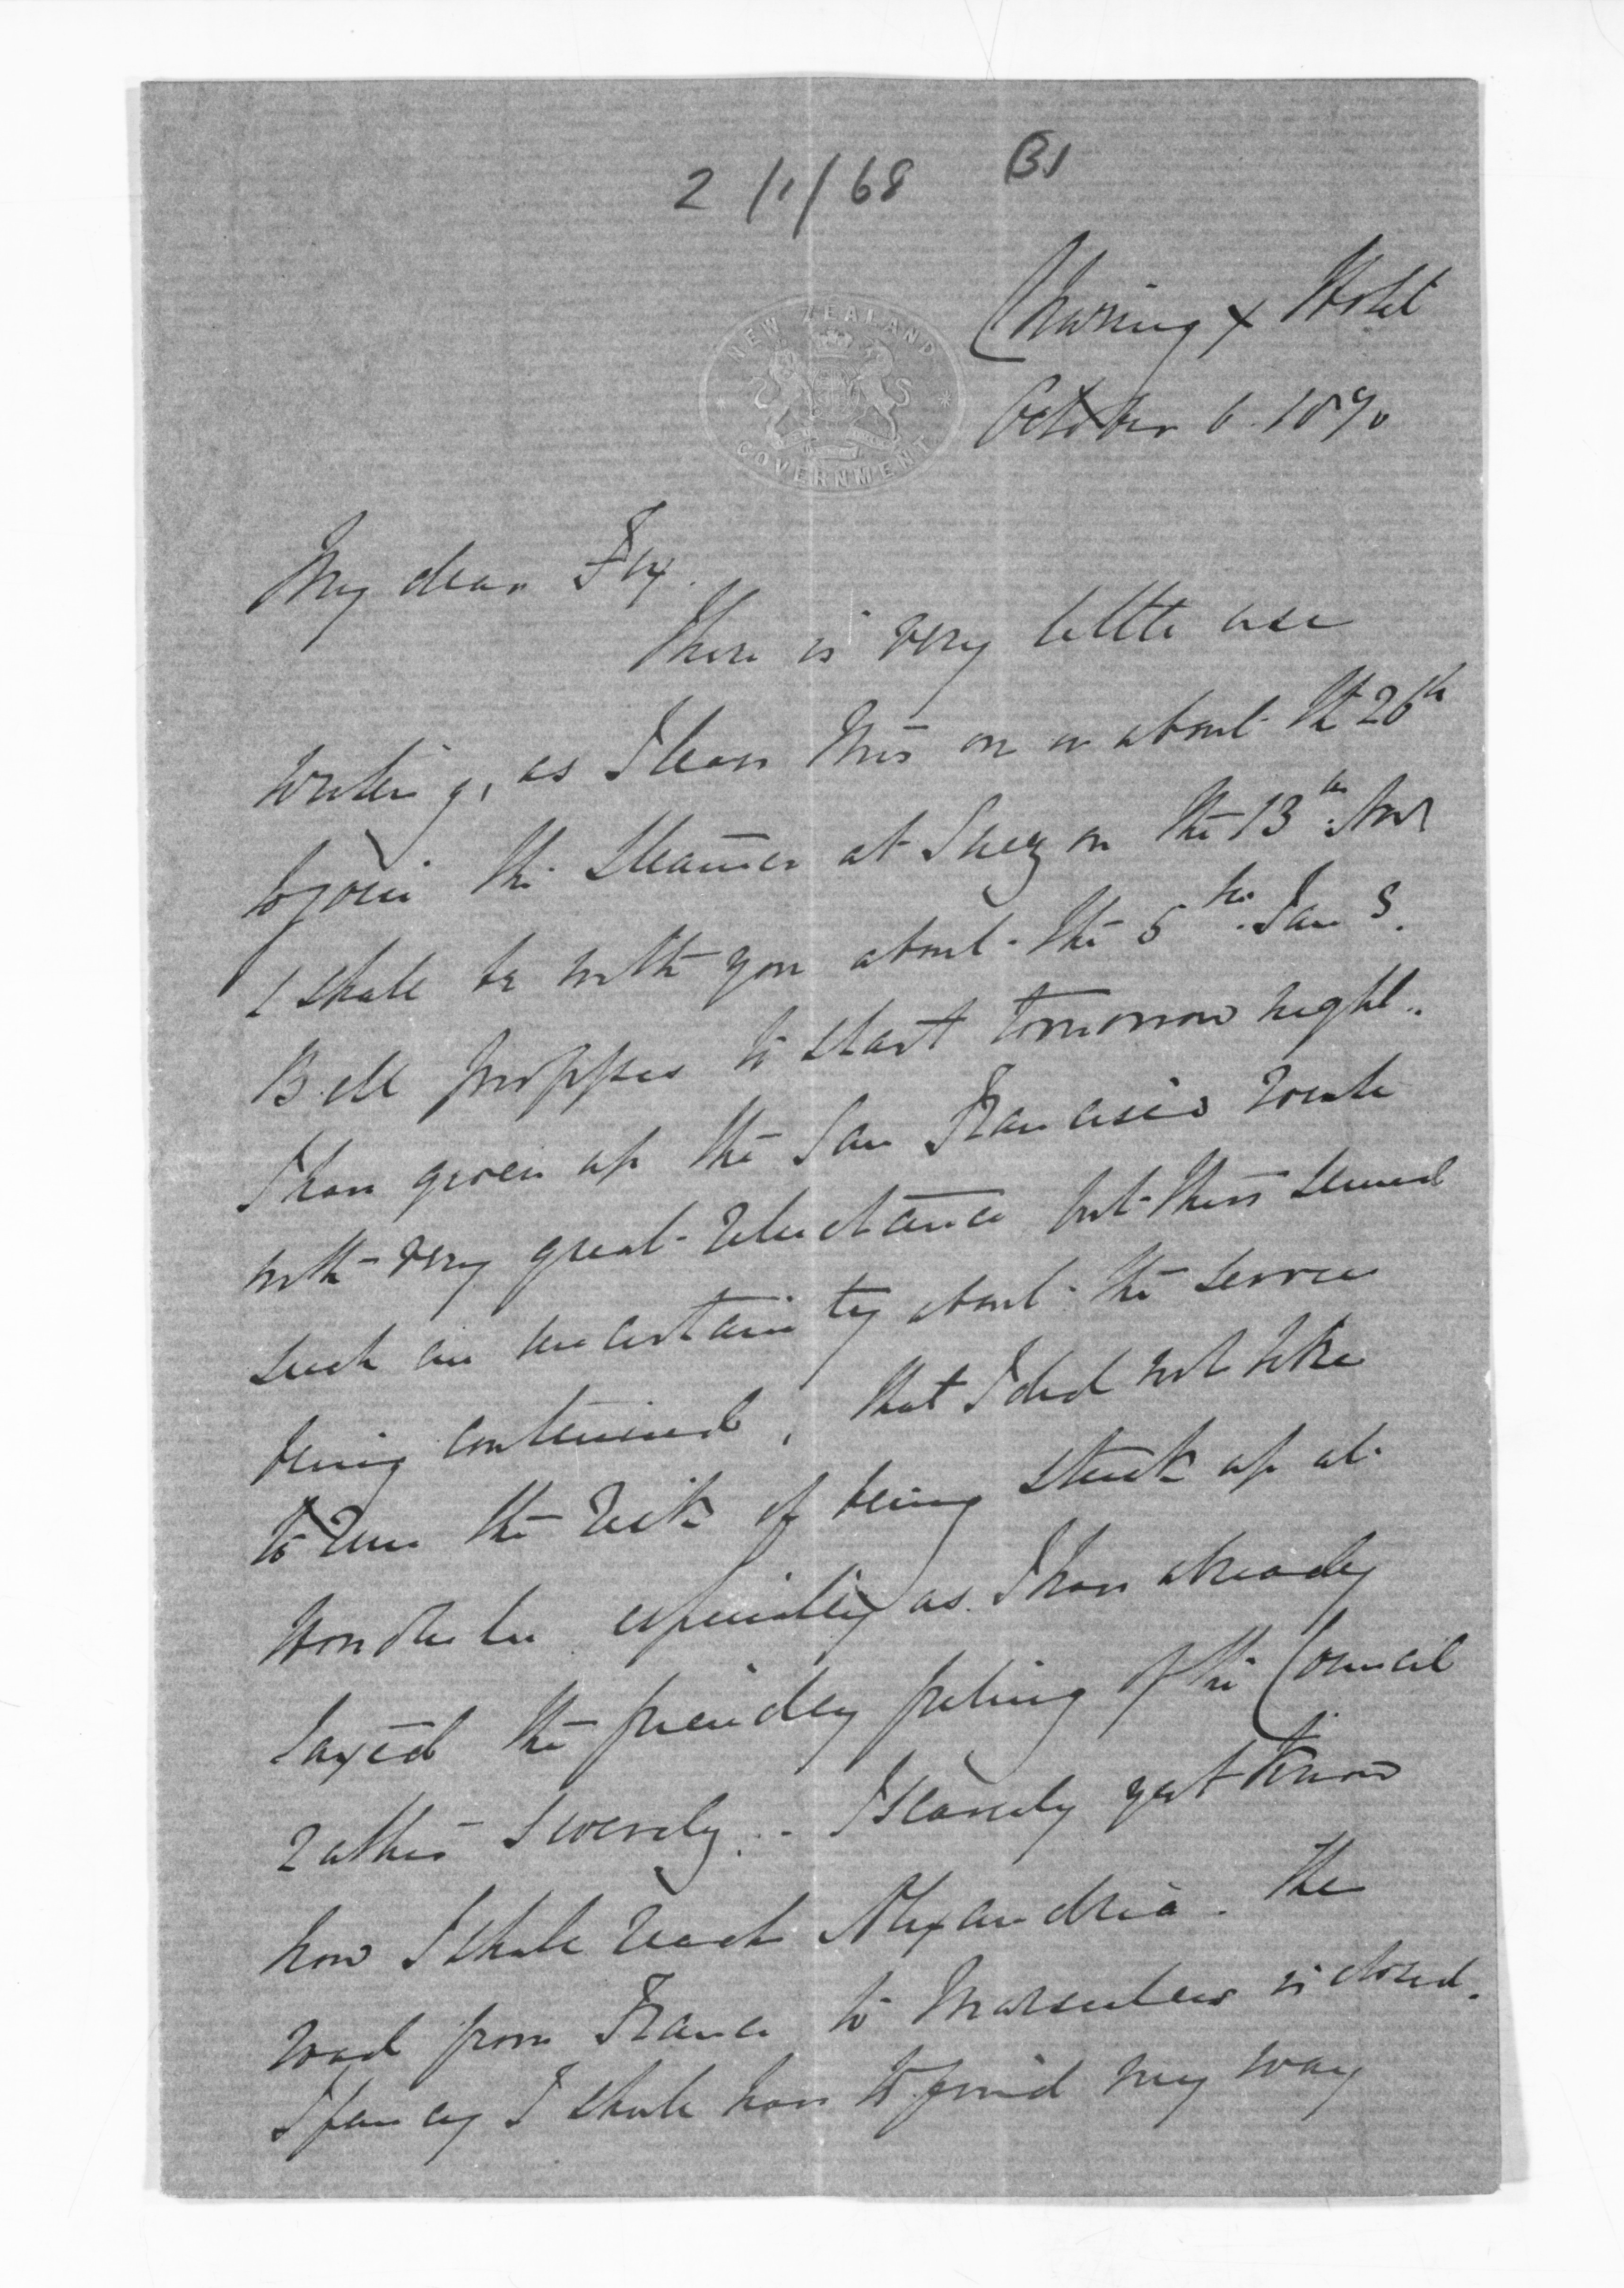 2/1/68 B1
Charing X Hotel
October 6. 1870
NEW ZEALAND
GOVERNMENT
My dear Fox.
There is very little use
writing, as I leave this on or about the 26th
to join the steamer at Suez on the 13th Nov
I shall be with you about the 5th Jan
Bell proposes to start tomorrow night.
I have given up the San Francisco route
with very great reluctance but there seemed
such an uncertainty about the service
being continued, that I did not like
to run the risk of being stuck up at
Honolulu especially as I have already
taxed the friendly feeling of the Council
rather severely. - I scarcely yet know
how I shall reach Alexandria. The
road from France to Marseilles is closed.
I fancy I shall have to find my way